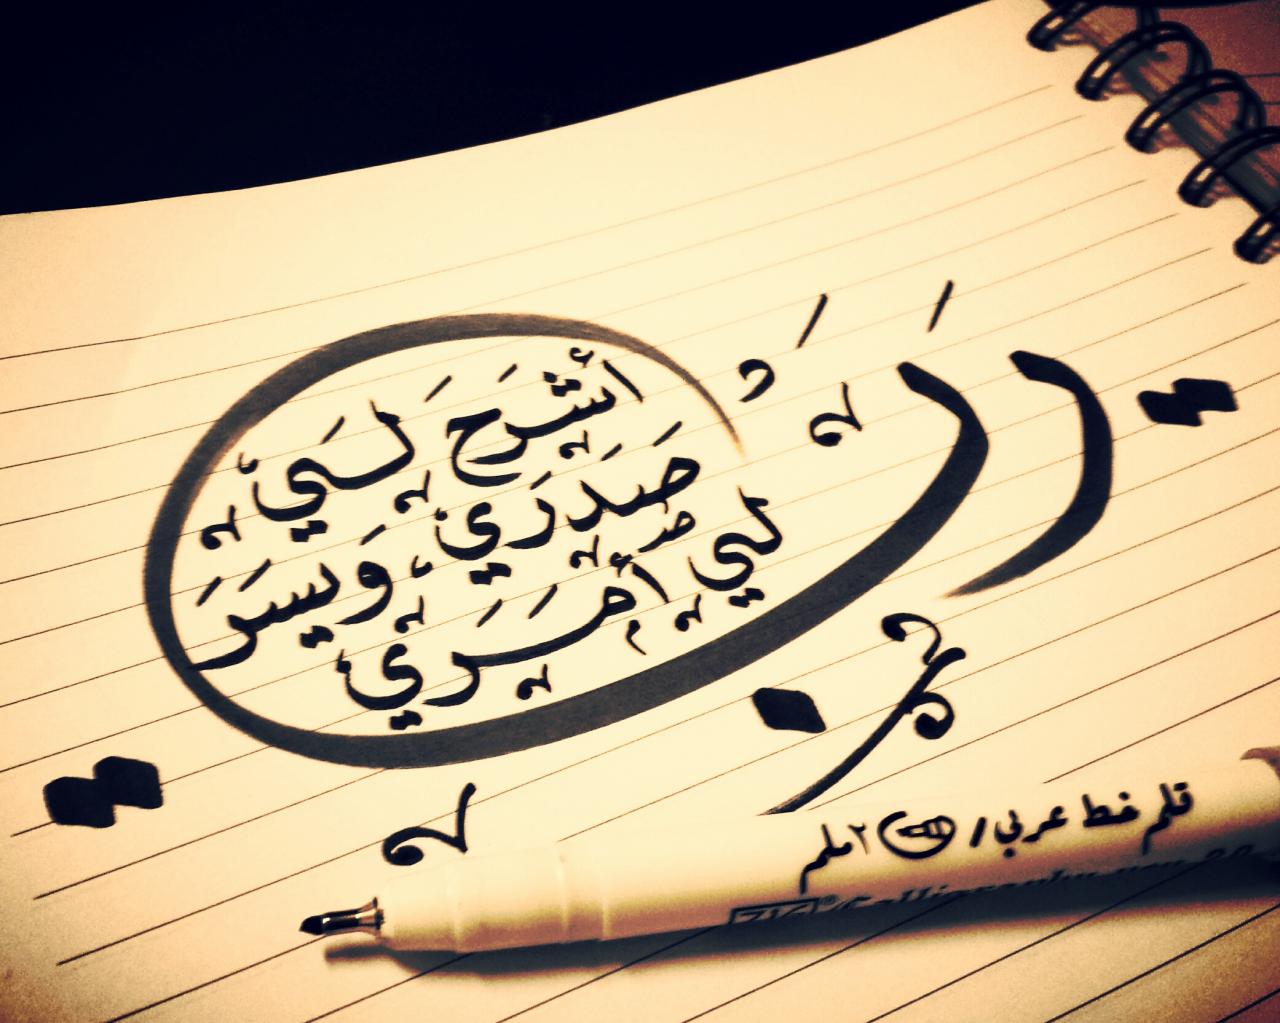 رب
أشرح لي
صدري، ويسر
لي أمري
قلم خط عربي / ٢ملم
ZIG® Calligraphy